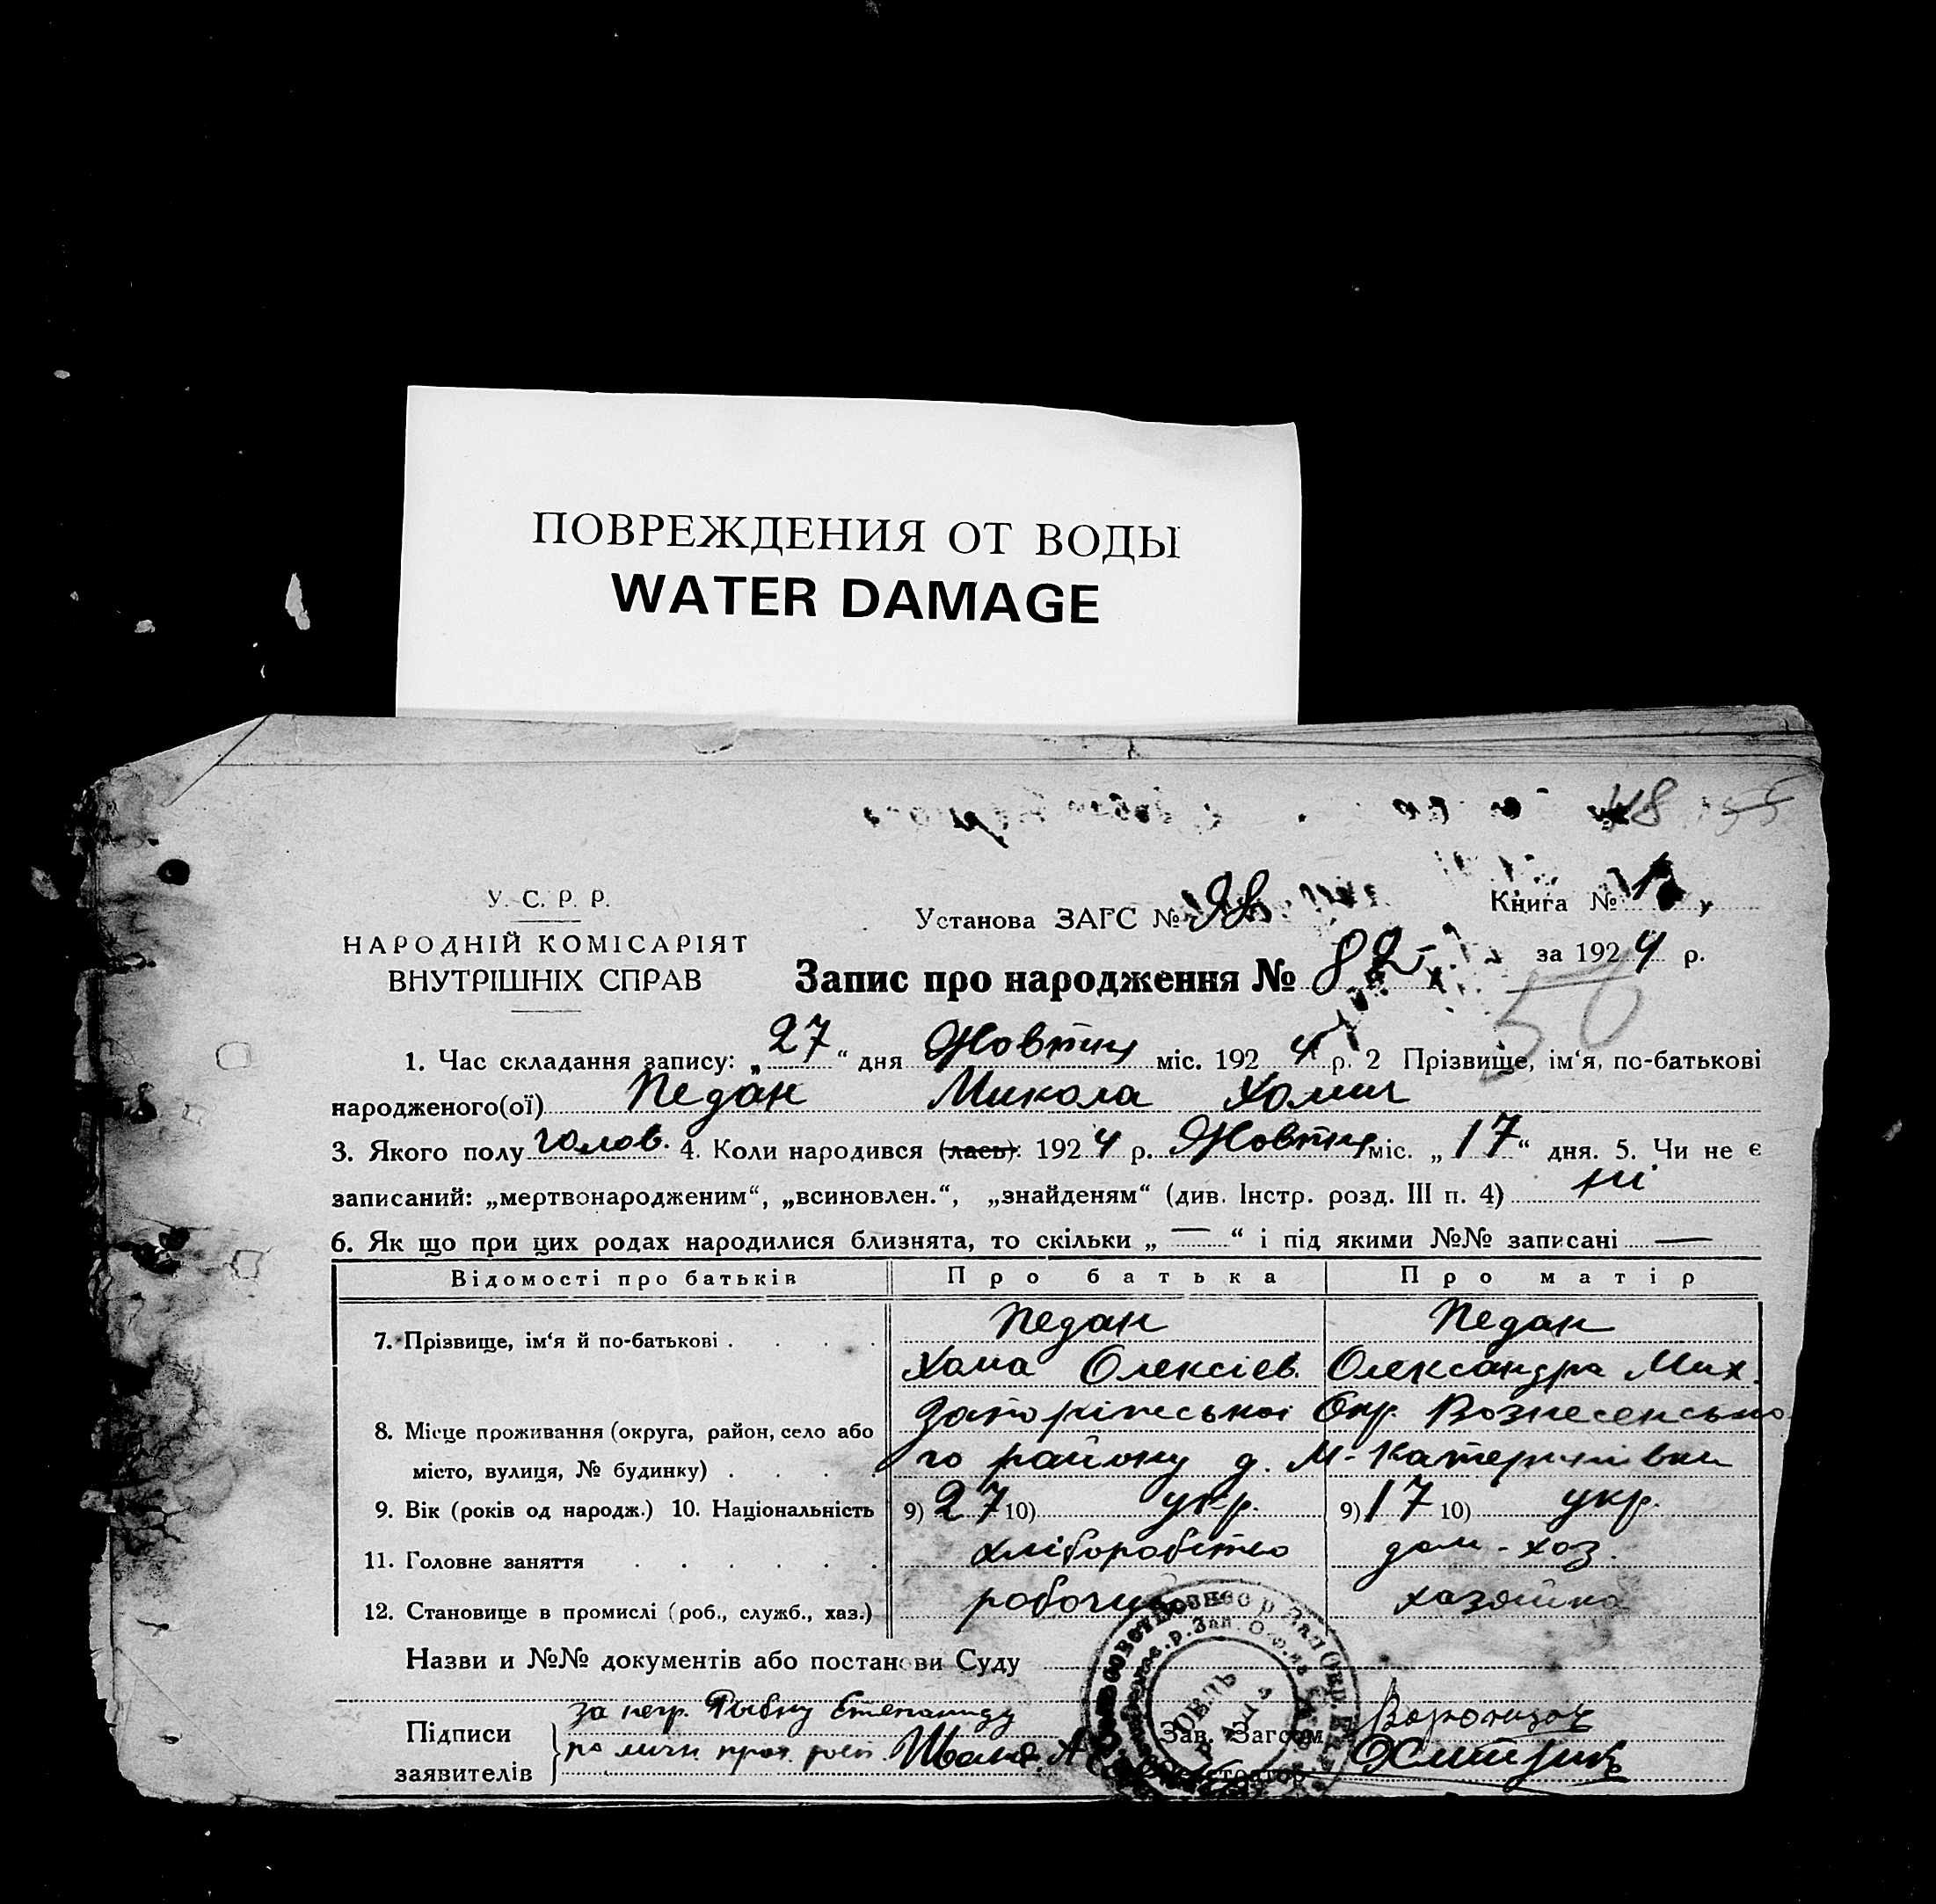 ПОВРЕЖДЕНИЯ ОТ ВОДЫ
WATER DAMAGE
У. С. Р. Р.
НАРОДНІЙ КОМІСАРІЯТ
ВНУТРІШНІХ СПРАВ
Установа ЗАГС №
Книга № 1
за 1924 р.
Запис про народження № 82
50
1. Час складання запису: „27“ дня Жовтня міс. 1924 р. 2 Прізвище, ім‘я, по-батькові
народженого(ої) Педан Микола Хомич
3. Якого полу чолов. 4. Коли народився (лась): 1924 р. Жовтня міс. „17“ дня. 5. Чи не є
записаний: „мертвонародженим“, „всиновлен.“, „знайденям“ (див. Інстр. розд. III п. 4) ні
6. Як що при цих родах народилися близнята, то скільки „ — “ і під якими №№ записані —
Відомості про батьків Про батька Про матір
7. Прізвище, ім‘я й по-батькові . . . . Педан Педан
Хома Олексіев. Олександра Мих.
8. Місце проживання (округа, район, село або Запоріжської Окр. Вознесенсько
місто, вулиця, № будинку) . . . . го району д. М-Катеринівки
9. Вік (років од народж.) 10. Національність 9) 27 10) укр. 9) 17 10) укр.
11. Головне заняття . . . . . . хліборобство дом-хоз.
12. Становище в промислі (роб., служб., хаз.) робочий хазяйка
Назви и №№ документів або постанови Суду
Підписи
заявителів
за негр. Рибку Степаниду
Зав. Загсом